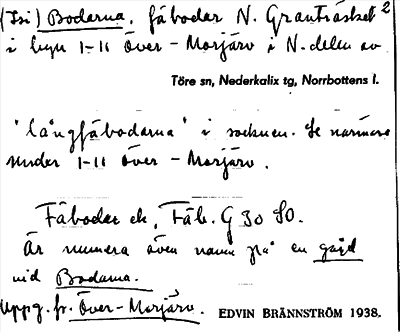 (Isi) Bodarna, fäbodar N. Granträsket 2
i byn 1-11 Över-Morjärv i N. delen av
Töre sn, Nederkalix tg, Norrbottens l.
"långfäbodarna" i socknen. Se närmare
under 1-11 Över-Morjärv.
Fäbodar ek. Fäb. G 30 SO.
Är numera även namn på en gård
vid Bodarna.
Uppg. fr. Över-Morjärv. EDVIN BRÄNNSTRÖM 1938.